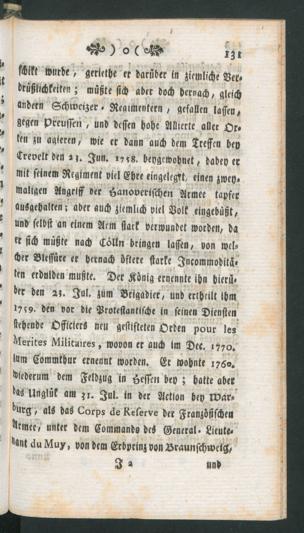 ) o (
131
schikt wurde, geriethe er darüber in ziemliche Ver-
drüßlichkeiten; müßte sich aber doch hernach, gleich
andern Schweizer-Regimentern, gefallen lassen,
gegen Preussen, und dessen hohe Allierte aller Or-
ten zu agieren, wie er dann auch dem Treffen bey
Crevelt den 23. Jun. 1758. beygewohnet, dabey er
mit seinem Regiment viel Ehre eingelegt, einen zwey-
maligen Angriff der Hanoverischen Armee tapfer
ausgehalten; aber auch ziemlich viel Volk eingebüßt,
und selbst an einem Arm stark verwundet worden, da
er sich müßte nach Cölln bringen lassen, von wel-
cher Blessüre er hernach öftere starke Incommoditä-
ten erdulden mußte. Der König ernennte ihn hierü-
ber den 25. Jul. zum Brigadier, und ertheilt ihm
1759. den vor die Protestantische in seinen Diensten
stehende Officiers neu gestifteten Orden pour les
Merites Militaires, wovon er auch im Dec. 1770.
zum Commthur ernennt worden. Er wohnte 1760.
wiederum dem Feldzug in Hessen bey; hatte aber
das Unglük am 31. Jul. in der Action bey War-
burg, als das Corps de Reserve der Französischen
Armee, unter dem Commando des General-Lieute-
nant du Muy, von dem Erbprinz von Braunschweig,
J 2
und